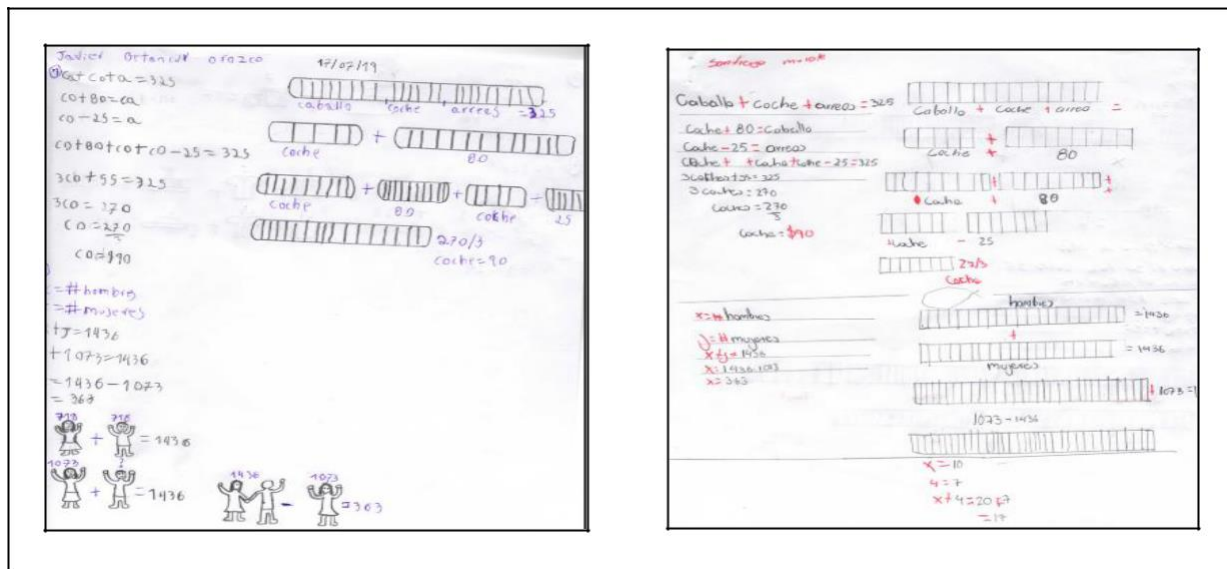 Javier
17/07/19
ca+co+a=325
co+80=ca
co-25=a
co+80+co+co-25=325
3co+55=325
3co=270
co=270
3
co=$90
caballo coche arrees =325
coche + 80
coche + 80 + coche - 25
270/3
coche=90
=#hombres
=#mujeres
+y=1436
+1073=1436
=1436-1073
=363
718 718
+ =1436
1073 ?
+ =1436
1436 1073
- =363
Caballo + coche + arreos =325
Coche + 80=Caballo
Coche-25=arreos
Coche + +Coche+coche-25=325
3 coches=270
Coches=270
3
Coche=$90
Caballo + Coche + arreo =
Coche + 80
Coche + 80 +
- 25
27/3
Coche
x=# hombres
y=# mujeres
x+y=1436
x=1436-1073
x=363
hombres
=1436
+
=1436
mujeres
+ 1073=1
1073-1436
x=10
4=7
x+4=20+7
=17